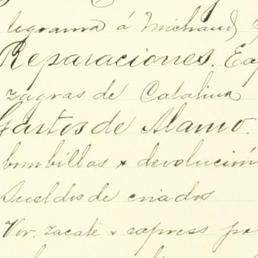 legrama á Michaud
Reparaciones.
zagras de Catalina
Gastos de Alamo.
bombillas x devolución
Sueldos de criados
Por zacate x express